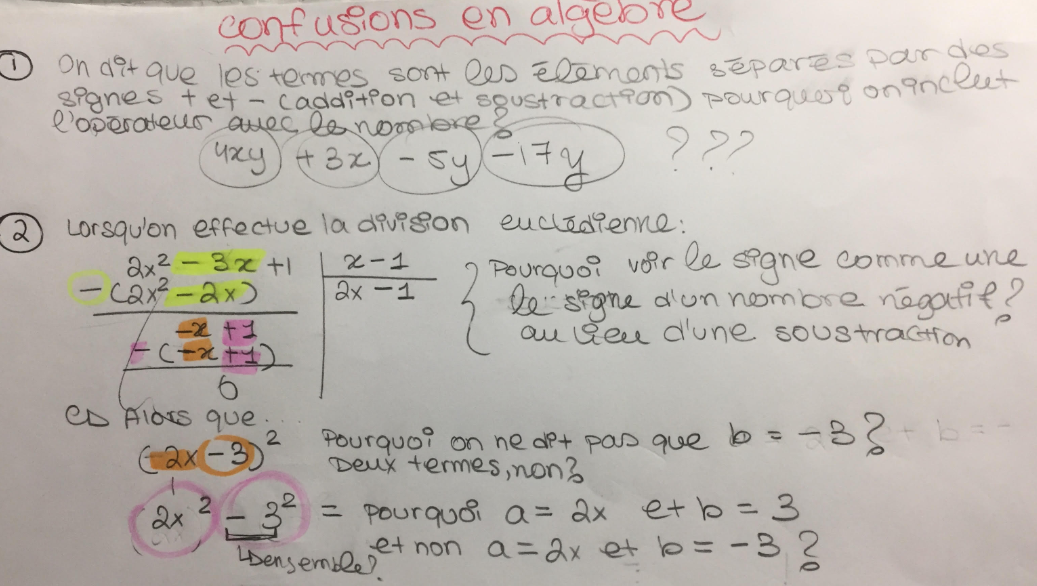 confusions en algèbre
1 On dit que les termes sont les éléments séparés par des
signes + et - (addition et soustraction) pourquoi on inclut
l'opérateur avec le nombre?
4xy + 3x - 5y - 17y ???
2 Lorsqu'on effectue la division euclidienne:
2x² - 3x + 1 x - 1
- (2x² - 2x) 2x - 1
-x + 1
- (-x + 1)
0
Pourquoi voir le signe comme une
le signe d'un nombre négatif?
au lieu d'une soustraction
Alors que..
(2x - 3)² Pourquoi on ne dit pas que b = -3?
Deux termes, non?
2x² - 3² = pourquoi a = 2x et b = 3
et non a = 2x et b = -3?
ensemble?